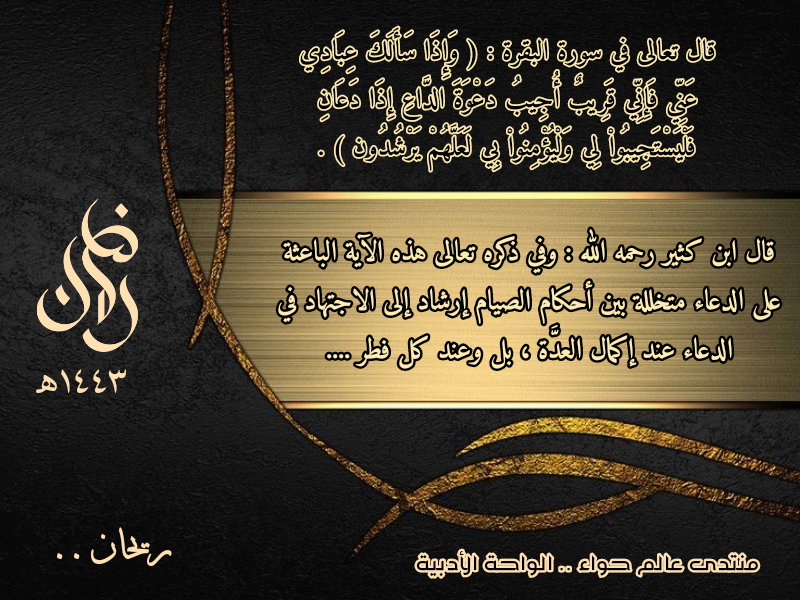 قال تعالى في سورة البقرة : ( وَإِذَا سَأَلَكَ عِبَادِي
عَنِّي فَإِنِّي قَرِيبٌ أُجِيبُ دَعْوَةَ الدَّاعِ إِذَا دَعَانِ
فَلْيَسْتَجِيبُواْ لِي وَلْيُؤْمِنُواْ بِي لَعَلَّهُمْ يَرْشُدُون ) .
قال ابن كثير رحمه الله : وفي ذكره تعالى هذه الآية الباعثة
على الدعاء متخللة بين أحكام الصيام إرشاد إلى الاجتهاد في
الدعاء عند إكمال العدَّة ، بل وعند كل فطر ....
رمضان
١٤٤٣هـ
ريحان . .
منتدى عالم حواء .. الواحة الأدبية